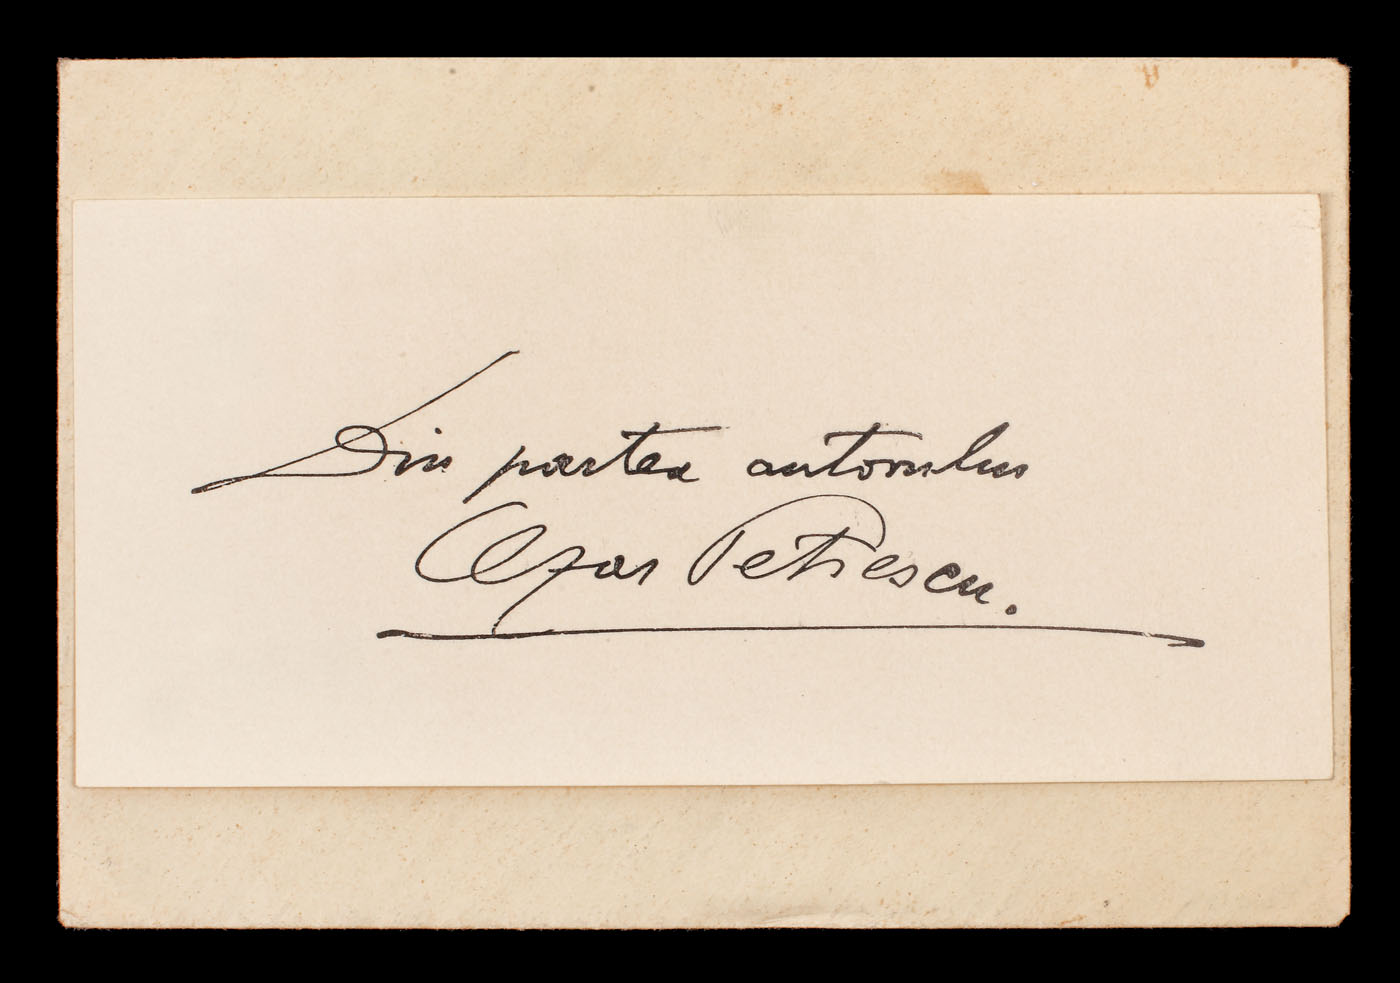 Din partea autorului
Cezar Petrescu.